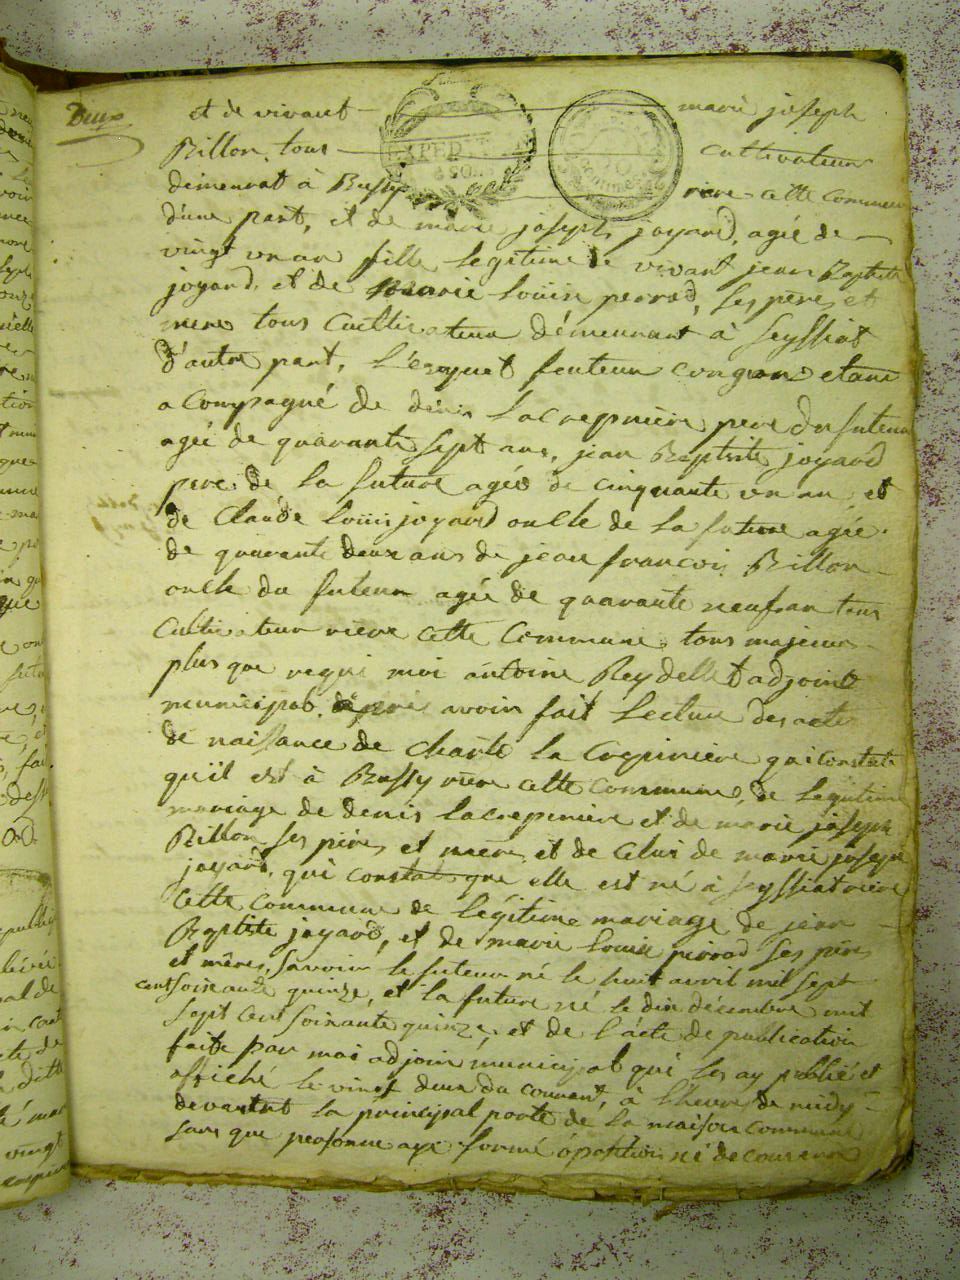 Deux
et de vivant marie joseph
Billon, tous cultivateur
demeurat à Bussy rière cette commune
d'une part, et de marie joseph joyard, agée de
vingt un an fille legitime de vivant jean Baptiste
joyard, et de marie Louise perrod, ses pères et
mere tous cultivateur démeurant à seyssiat
d'autre part, Lesquet futeur conjoin etant
acompagné de denis Lacrepinière pere du futeur
agée de quarante sept ans, jean Baptiste joyard
pere de la future agée de cinquante un an et
de Claude Louis joyard oncle de la future agée
de quarante deux ans de jean francois Billon
oncle du futeur agée de quarante neuf an tous
Cultivateur rière cette Commune tous majeur
plus que requi moi antoine Reydellet adjoint
municipal, après avoir fait Lecture des acte
de naissance de Charle la Crepiniere qui constate
qu'il est à Bussy rière cette commune, de Legitime
mariage de denis lacrepiniere et de marie joseph
Billon ses pères et mères et de Celui de marie joseph
joyard, qui constate que elle est né à seyssiat rière
Cette Commune de Légitime mariage de jean
Baptiste joyard, et de marie Louise perrod ses pères
et mères, savoir le futeur né le huit avril mil sept
cent soixante quinze, et la future né le dix décembre mil
sept cent soixante quinze, et de l'acte de publication
faite par moi adjoin municipal qui les ay publié et
affiché le vingt deux du courant, à l'heure de midy
devantat la principal porte de la maison commune
sans que personne aye formé opozition né de cour